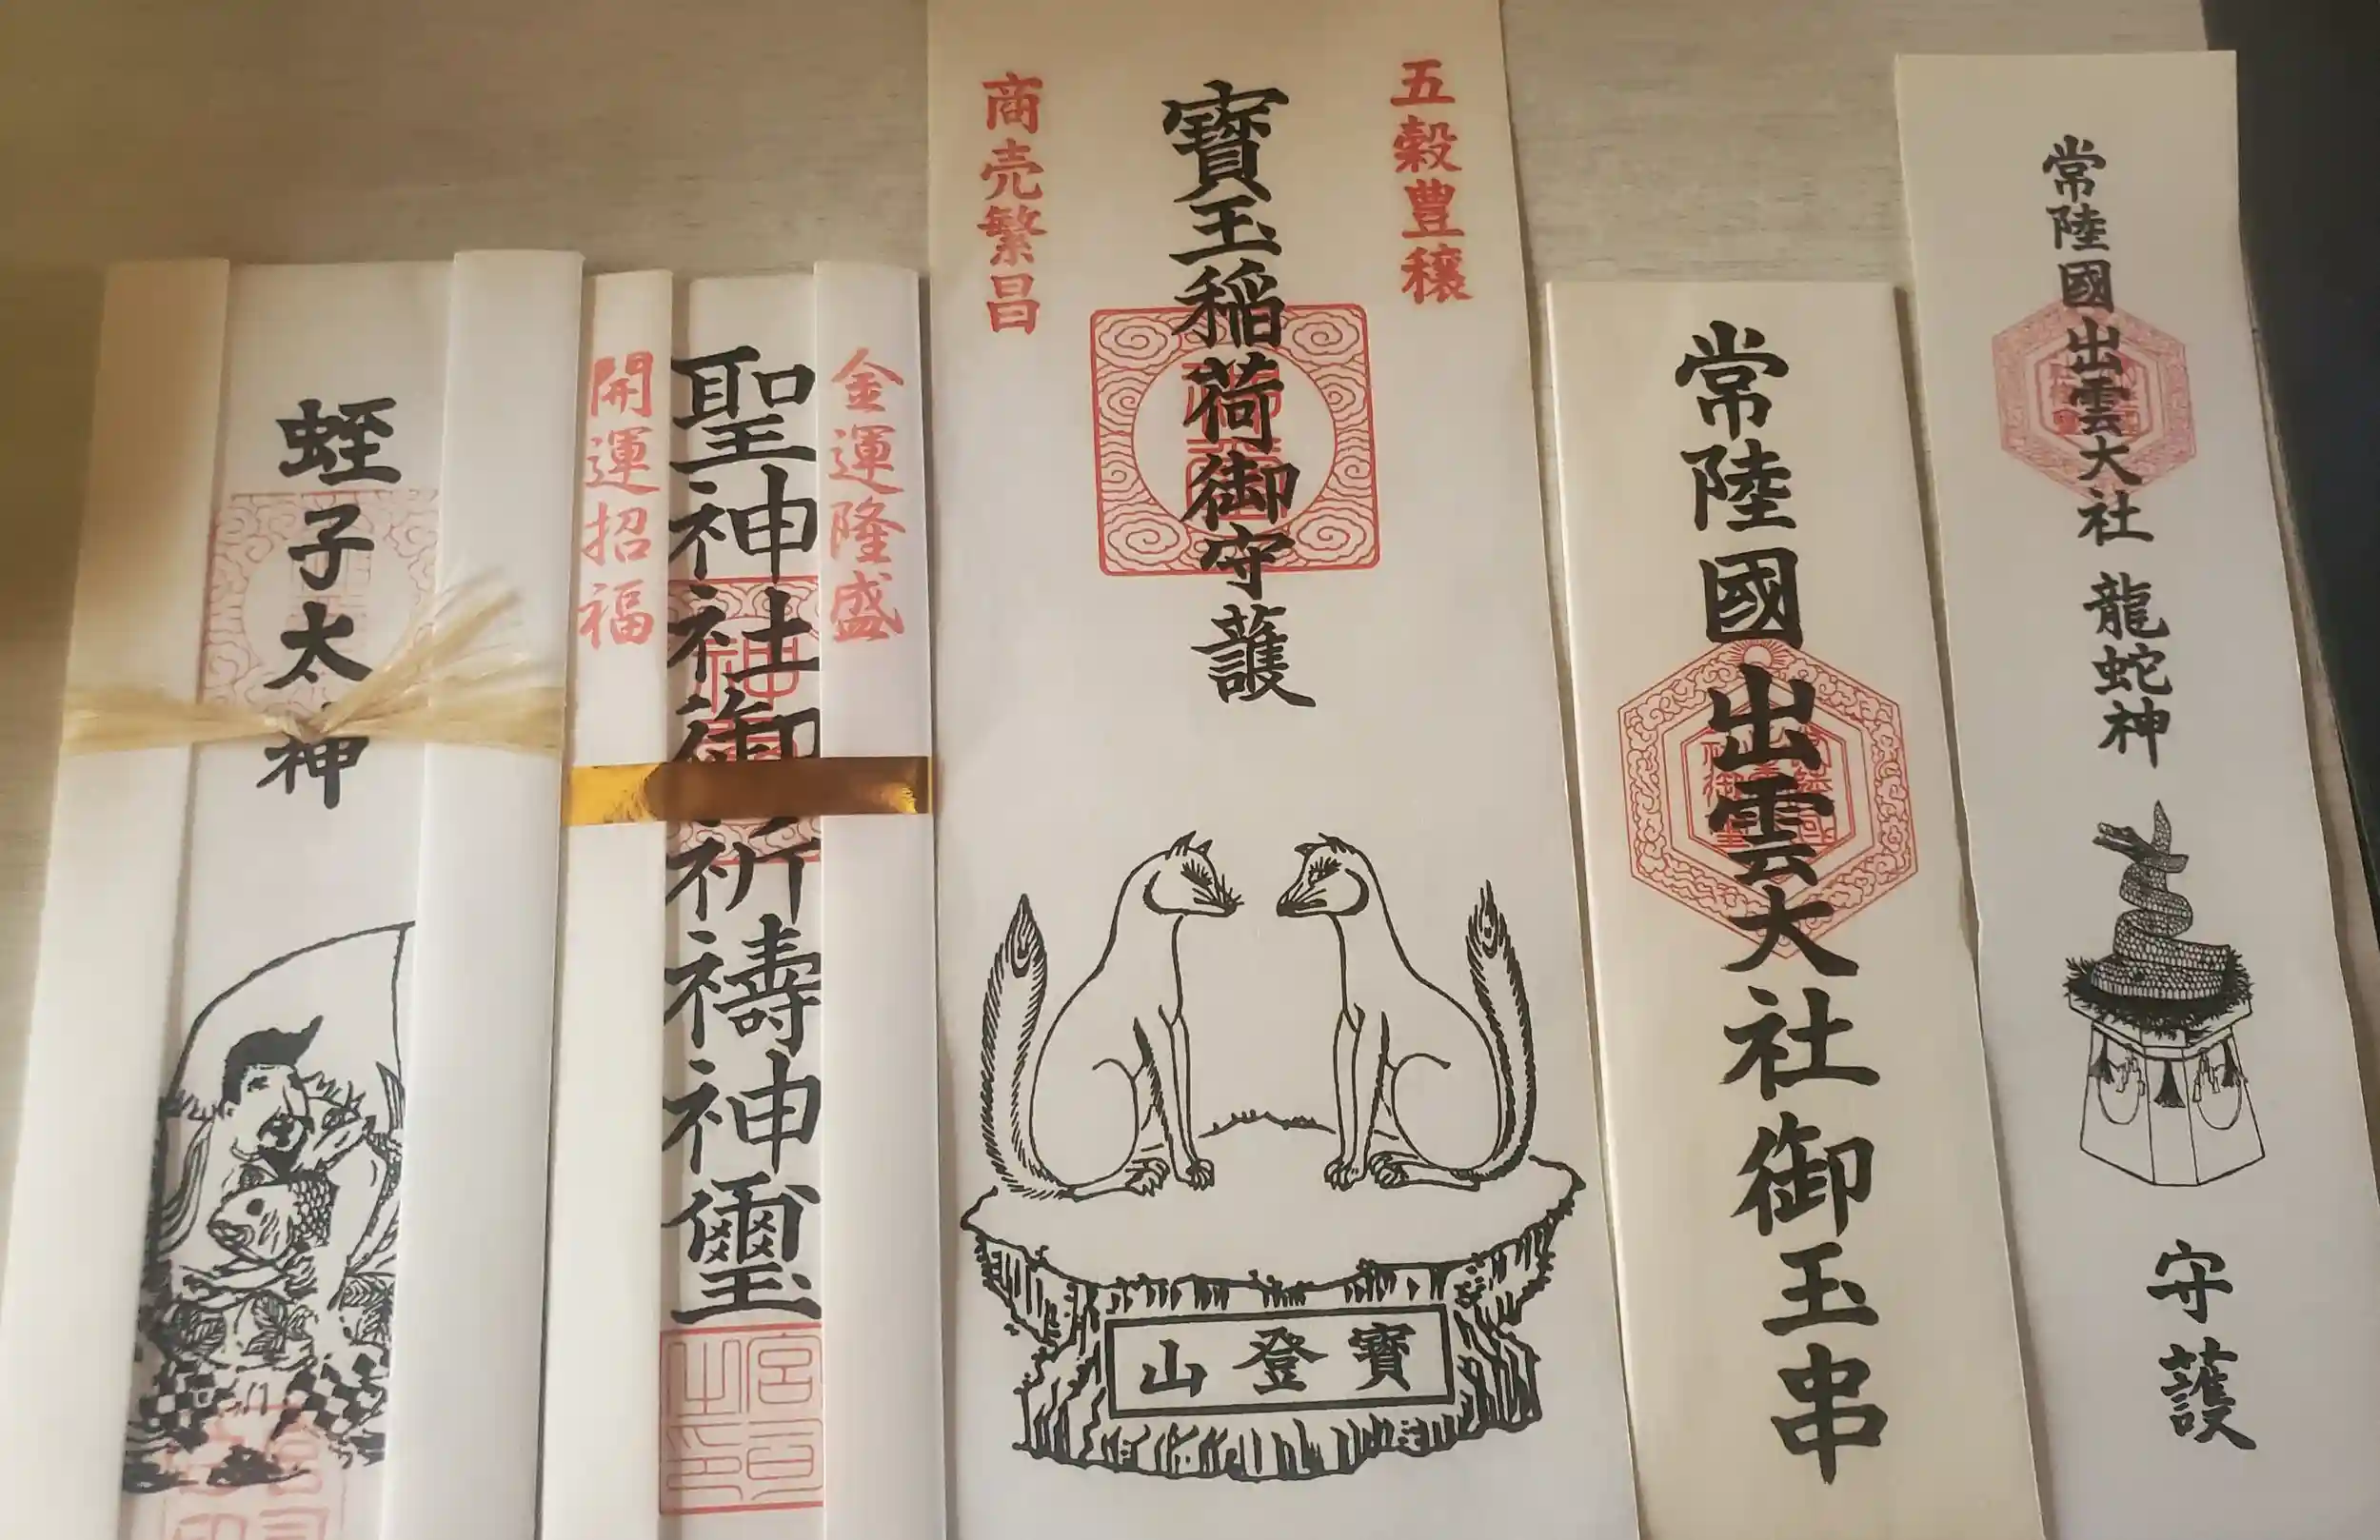 蛭子太神
金運隆盛
聖神社御祈祷神璽
開運招福
五穀豊穣
寶玉稲荷御守護
商売繁昌
寶登山
常陸國出雲大社御玉串
常陸國出雲大社 龍蛇神
守護